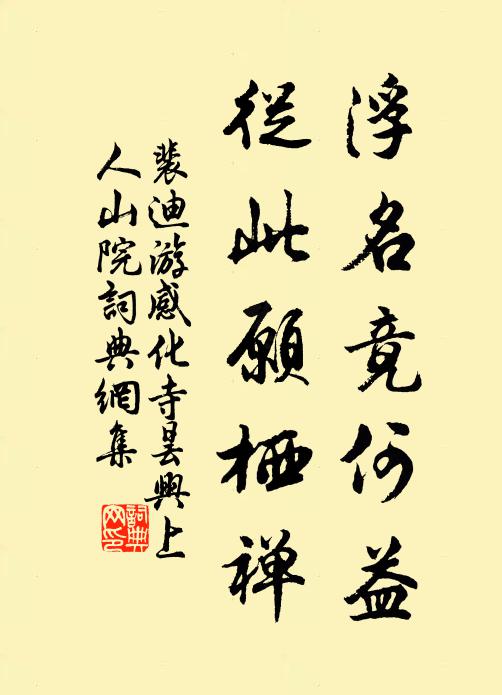 浮名竟何益
從此願栖禅
裴迪游感化寺昙興上
人山院詞典網集
詞典
网印